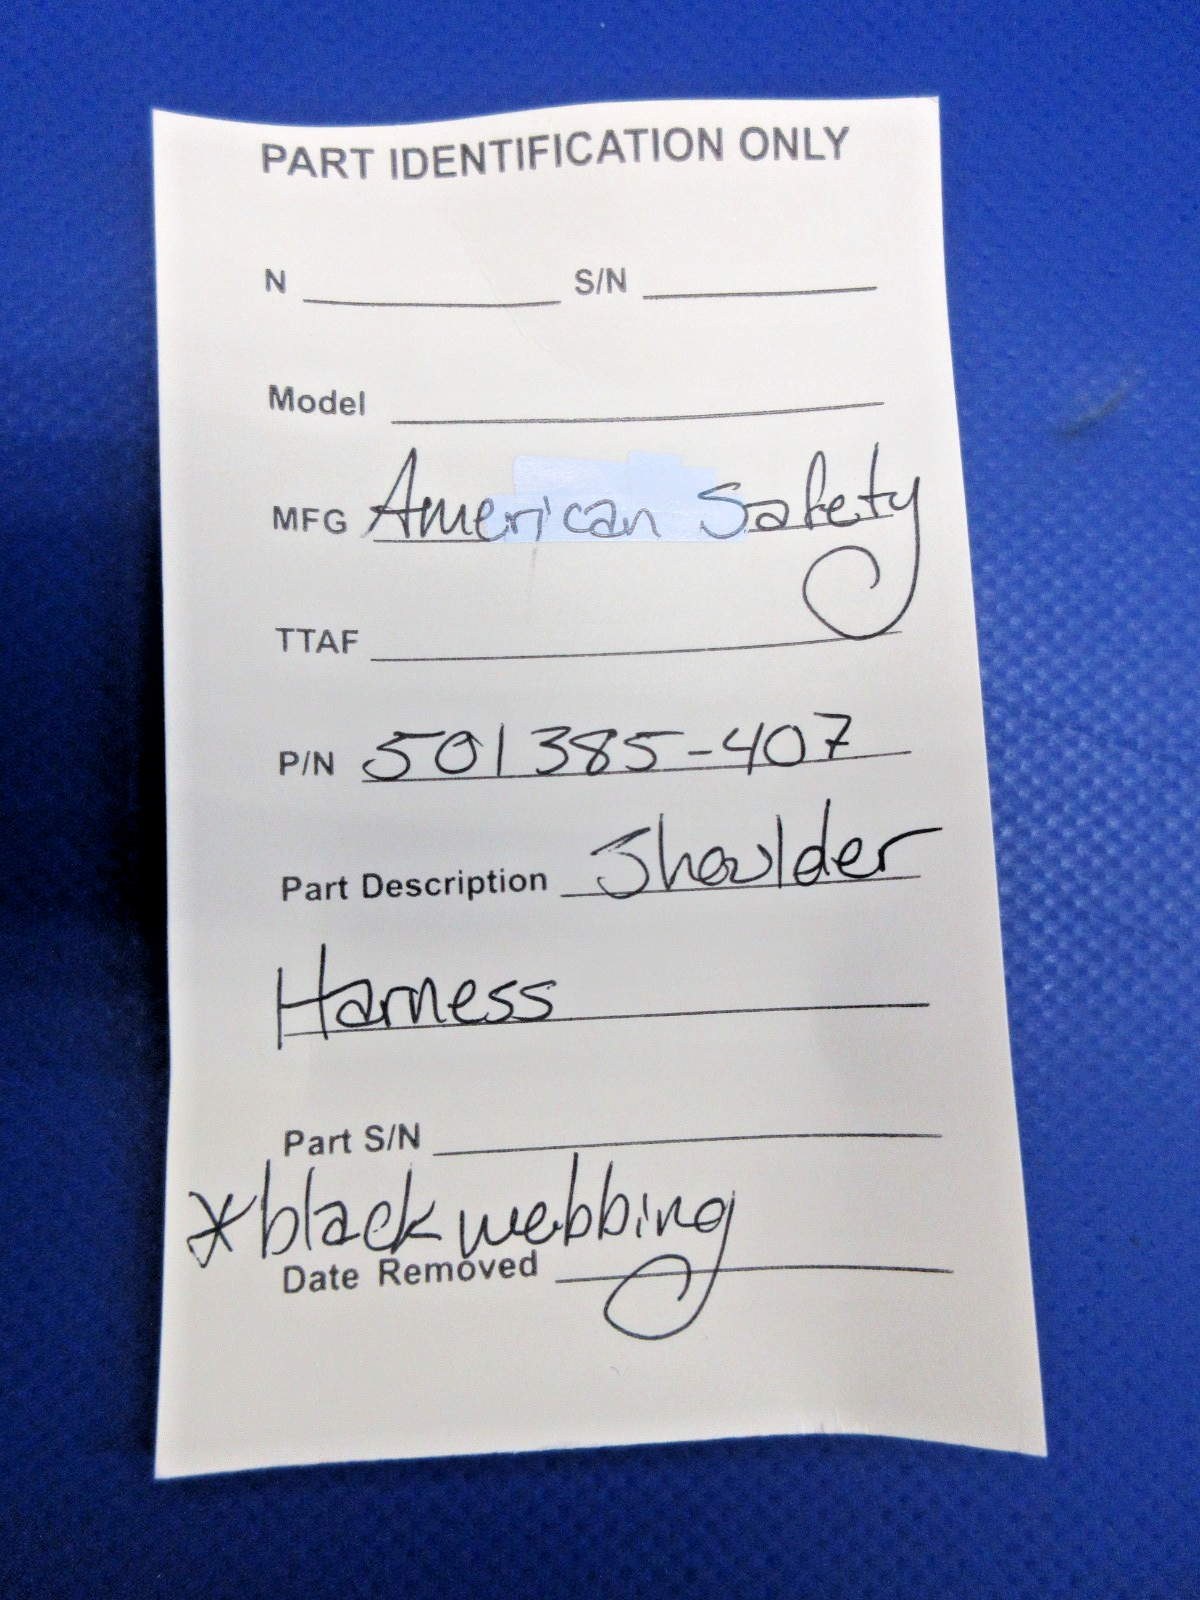 PART IDENTIFICATION ONLY
N S/N
Model
MFG American Safety
TTAF
P/N 501385-407
Part Description Shoulder
Harness
Part S/N
*black webbing
Date Removed